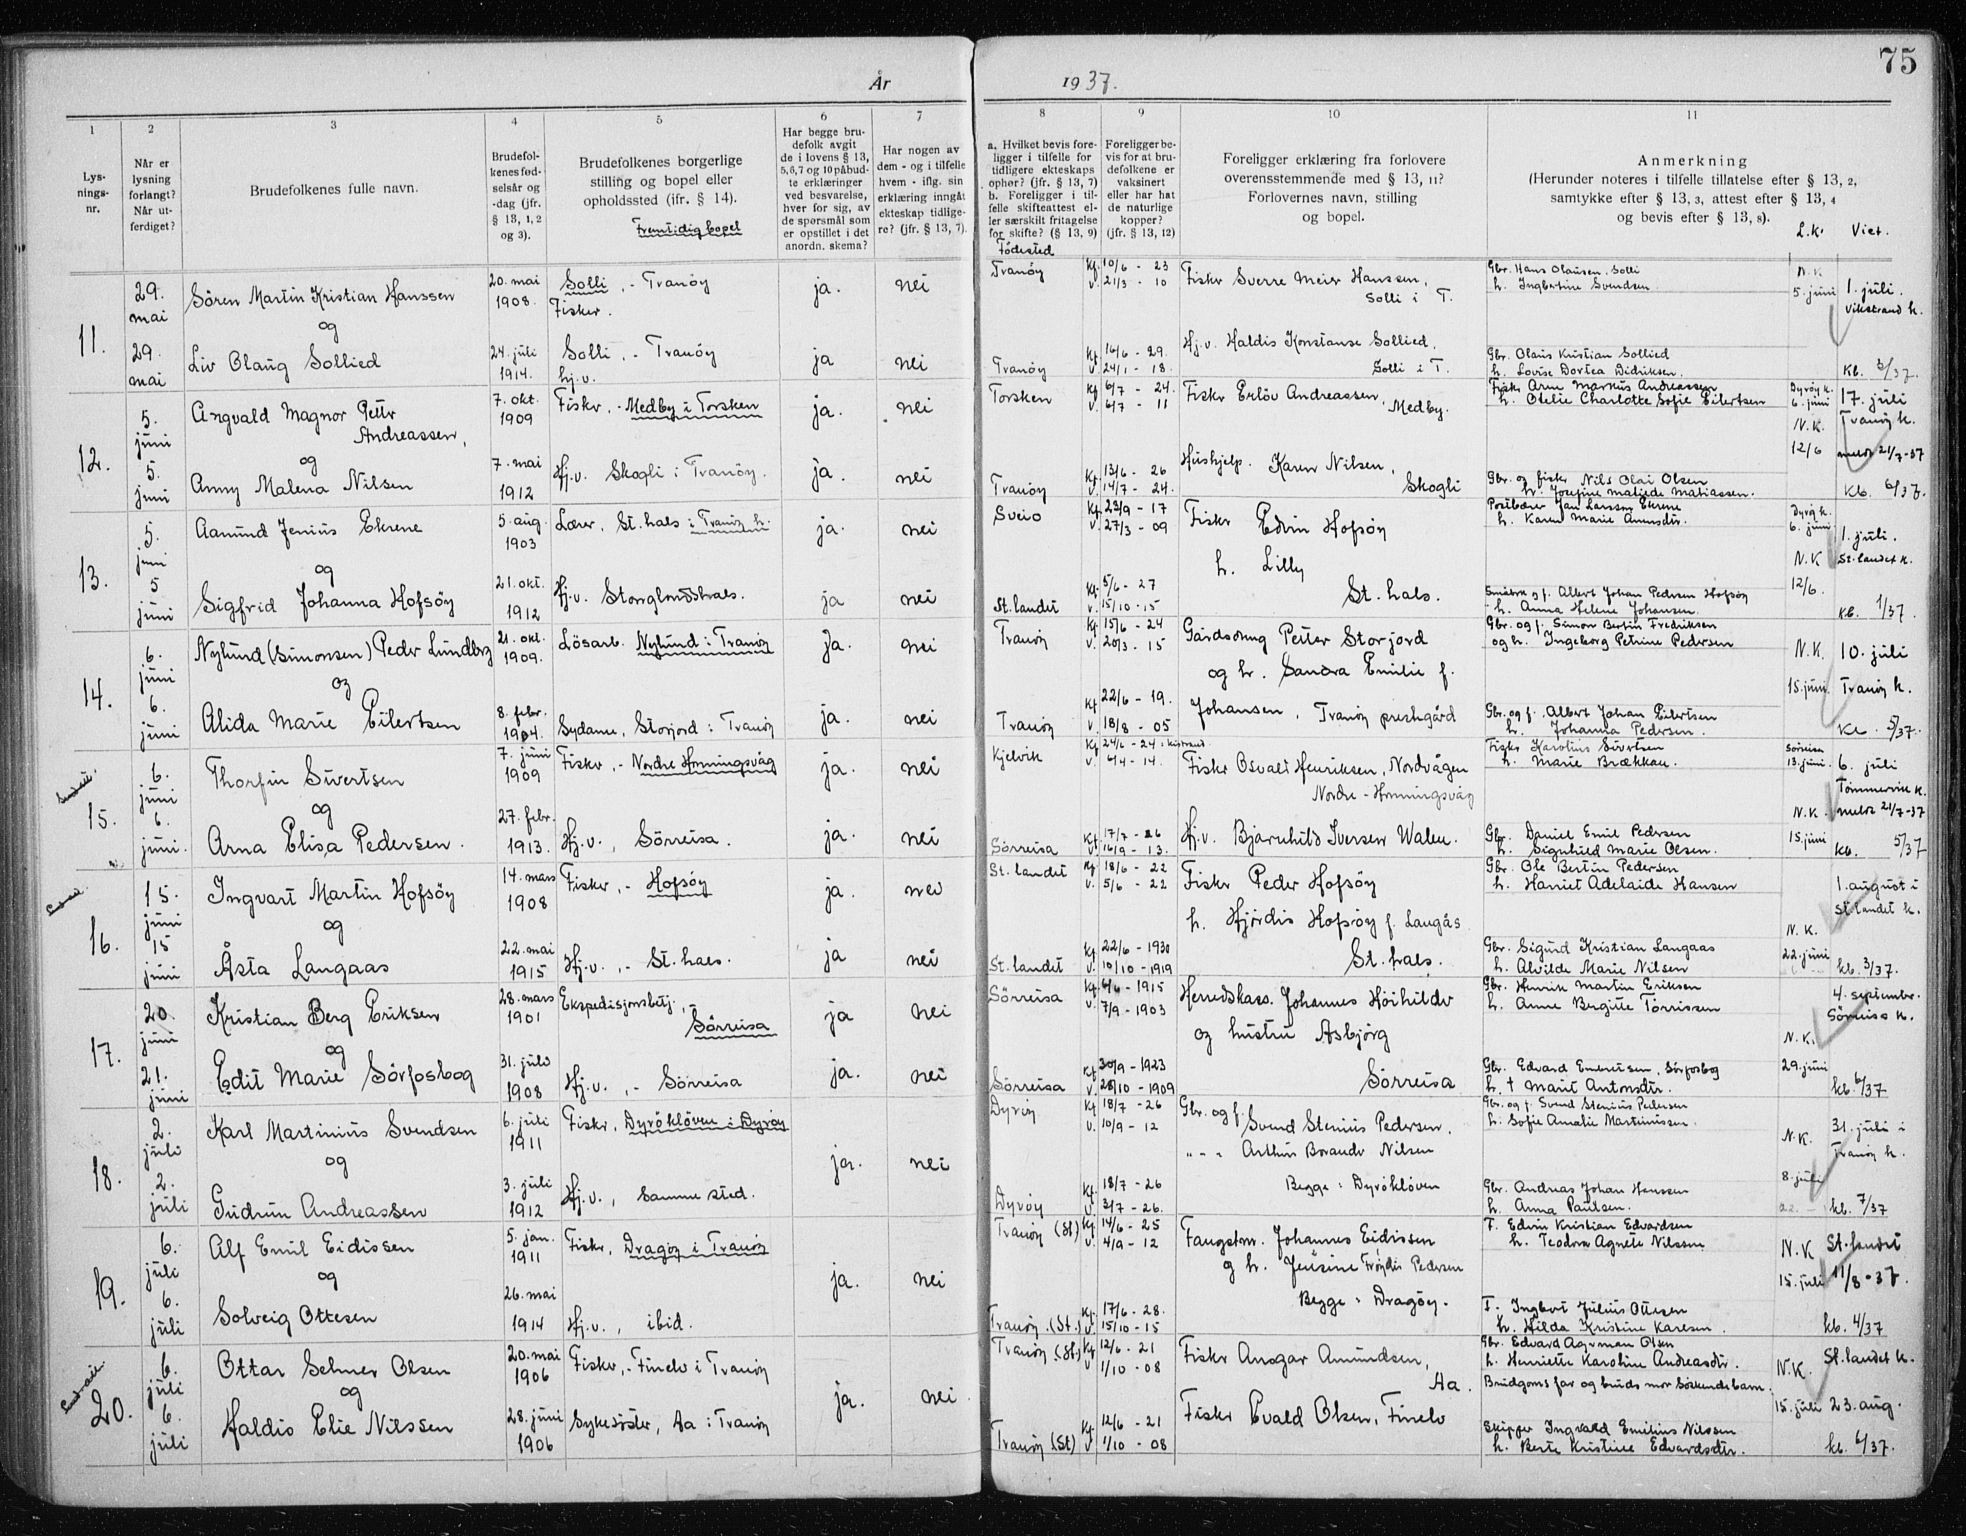 75
År 1937.
1 2 3 4 5 6 7 8 9 10 11
Lys-
nings-
nr.
Når er
lysning
forlangt?
Når ut-
ferdiget?
Brudefolkenes fulle navn.
Brudefol-
kenes fød-
selsår og
-dag (jfr.
§ 13, 1, 2
og 3).
Brudefolkenes borgerlige
stilling og bopel eller
opholdssted (ifr. § 14).
Fremtidig bopel
Har begge bru-
defolk avgit
de i lovens § 13,
5,6,7 og 10 påbud-
te erklæringer
ved besvarelse,
hver for sig, av
de spørsmål som
er opstillet i det
anordn. skema?
Har nogen av
dem - og i tilfelle
hvem - iflg. sin
erklæring inngåt
ekteskap tidlige-
re? (jfr. § 13, 7).
a. Hvilket bevis fore-
ligger i tilfelle for
tidligere ekteskaps
ophør? (jfr. § 13, 7)
b. Foreligger i til-
felle skifteattest el-
ler særskilt fritagelse
for skifte? (§ 13, 9)
Födested
Foreligger be-
vis for at bru-
defolkene er
vaksinert
eller har hat
de naturlige
kopper?
(jfr. § 13, 12)
Foreligger erklæring fra forlovere
overensstemmende med § 13, 11?
Forlovernes navn, stilling
og bopel.
Anmerkning
(Herunder noteres i tilfelle tillatelse efter § 13, 2,
samtykke efter § 13, 3, attest efter § 13, 4
og bevis efter § 13, 8).
L.k. Viet.
11.
29. mai
Sören Martin Kristian Hanssen
20. mai 1908.
Solli, - Tranöy
Fisker.
ja. nei
Tranöy
Kf. 10/6 - 23
v. 21/3 - 10
Fisker Sverre Meier Hanssen,
Solli i T.
Gbr. Hans Olaüsen, Solli
h. Ingbertine Svendsen.
N.K
5. juni
1. juli.
Vikstrand k.
og
29. mai
Liv Olaüg Sollied
24. juli 1914.
Solli, - Tranöy
hj.v.
ja nei
Tranöy
Kf. 16/6 - 29.
v. 24/1 - 18.
Hj.v. Haldis Konstanse Sollied,
Solli i T.
Gbr. Olaüs Kristian Sollied
h. Lovise Dortea Didriksen.
Kb. 3/37.
12.
5. juni
Angvald Magnor Peter
Andreassen,
7. okt. 1909
Fisker, - Medby i Torsken
ja. nei
Torsken
Kf 6/7 - 24.
v. 6/7 - 11
Fisker Erlöv Andreassen,
Medby.
Fisker Arne Markus Andreassen
h. Otelie Charlotte Sofie Eilertsen
Dyröy k.
6. juni
N.K.
12/6
17. juli
Tranöy k.
meldt 21/7-37
og
5. juni
Anny Malena Nilsen
7. mai 1912
Hj.v. Skogli i Tranöy.
ja. nei
Tranöy
Kf. 13/6 - 26
v. 14/7 - 24.
Hushjelp. Karen Nilsen,
Skogli
Gbr. og fisker Nils Olai Olsen
h. Josefine Matilde Matiassen.
Kb. 6/37.
13.
5. juni
Aamund Jenius Ekrene
5. aug. 1903
Lærer, St.hals i Tranöy h.
ja. nei
Sveio
Kf. 23/9 - 17
v. 27/3 - 09
Fisker Edvin Hofsöy
h. Lilly
St. hals.
Postbærer Jan Larssen Ekrene
h. Karen Marie Amunsdtr.
Dyröy k.
6. juni
N.K
12/6.
1. juli.
St.landet k.
og
5 juni
Sigfrid Johanna Hofsöy
21. okt. 1912
Hj.v. Stonglandshals.
ja nei
St.landet
Kf. 5/6 - 27
v. 15/10 - 15
Småbrk og f. Albert Johan Pedersen Hofsöy
h. Anna Helene Johansen.
Kb. 1/37.
14.
6. juni
Nylund (Simonsen) Peder Lundberg
21. okt. 1909.
Lösarb. Nylund i Tranöy
ja. nei
Tranöy
Kf 15/6 - 24
v. 20/3 - 15
Gårdsdreng Peter Storjord
og h. Sandra Emilie f.
Johansen, Tranöy prestegård
Gbr. og f. Simon Bertin Fredriksen
og h. Ingeborg Petrine Pedersen
N.K.
15. juni.
10. juli
Tranöy k.
og
6. juni
Alida Marie Eilertsen
8. febr. 1904.
Sydame, Storjord i Tranöy
ja. nei
Tranöy
Kf 22/6 - 19.
v. 18/8 - 05
Gbr. og f. Albert Johan Eilertsen
h. Johanna Pedersen.
Kb. 5/37.
15.
6. juni
Thorfin Sivertsen
7. juni 1909
Fisker, - Nordre Honningsvåg
ja. nei
Kjelvik
Kf 24/6 - 24 i Kistrand
v. 6/4 - 14.
Fisker Osvald Henriksen, Nordvågen
Nordre - Honningsvåg
Fisker Karolius Sivertsen
h. Marie Brækkan.
Sørreisa
13. juni.
N.K.
15. juni
6. juli
Tömmervik k.
meldt 21/7-37
og
6. juni.
Arna Elisa Pedersen.
27. febr. 1913.
Hj.v., Sörreisa.
ja. nei
Sörreisa
Kf 17/7 - 26
v. 16/9 - 13.
Hj.v. Bjarnhild Iversen Walen.
Gbr. Daniel Emil Pedersen
h. Signhild Marie Olsen.
Kb. 5/37
16.
15. juni
Ingvart Martin Hofsöy
14. mars 1908
Fisker, - Hofsöy
ja. nei
St.landet
Kf 18/6 - 22
v. 5/6 - 22
Fisker Peder Hofsöy
h. Hjördis Hofsöy f. Langås
St. hals.
Gbr. Ole Bertin Pedersen
h. Harriet Adelaide Hansen
N.K.
22. juni
1. august i
St.landet k.
og
15 juni
Åsta Langaas
22. mai 1915
Hj.v., - St. hals.
ja nei
St.landet
Kf 22/6 - 1930
v. 10/10 - 1919
Gbr. Sigurd Kristian Langaas
h. Alvilde Marie Nilsen
kb. 3/37.
17.
20. juni
Kristian Berg Eriksen
28. mars 1901
Ekspedisjonsbetj., -
Sörreisa
ja nei
Sörreisa
Kf. 6/6 - 1915
v. 7/9 - 1903
Herredskass. Johannes Höihilder
og hustru Asbjörg
Sörreisa
Gbr. Henrik Martin Eriksen
h. Anne Bergitte Torrissen
N.K.
29. juni
4. septembr.
Sörreisa k.
og
21. juni
Edit Marie Sörfosbog
31. juli 1908
Hj.v., - Sörreisa
ja. nei
Sörreisa
Kf 30/9 - 1923
v. 28/10 - 1909
Gbr. Edvard Embretsen, Sörfosbog
h. † Marit Antonsdtr.
kb. 6/37
18.
2. juli
Karl Martinius Svendsen
6. juli 1911
Fisker, Dyröklöven i Dyröy
ja. nei
Dyröy
Kf 18/7 - 26
v. 10/9 - 12
Gbr. og f. Svend Stenius Pedersen.
" - " - Arthur Berander Nilsen
Begge: Dyröklöven
Gbr. og f. Svend Stenius Pedersen
h. Sofie Amalie Martinussen.
N.K.
8. juli
31. juli i
Tranöy k.
og
2. juli
Gudrun Andreassen
3. juli 1912
Hj.v., samme sted.
Dyröy
Kf. 18/7 - 26
v. 3/7 - 26.
Gbr. Andreas Johan Hanssen
h. Anna Paulsen.
kb. 7/37
19.
6. juli
Alf Emil Eidissen
5. jan. 1911
Fisker, Dragöy i Tranöy
ja. nei
Tranöy (St)
Kf. 14/6 - 25
v. 4/9 - 12
Fangstm. Johannes Eidissen
og h. Jensine Fröydis Pedersen
Begge: Dragöy.
F. Edvin Kristian Edvardsen
h. Teodora Agnete Nilssen
N.K
15. juli
St.landet
11/8 - 37.
og
6. juli
Solveig Ottesen
26. mai 1914
Hj.v., ibid.
Tranöy (St.)
Kf. 17/6 - 28.
v. 15/10 - 15
F. Ingbert Julius Ottesen
h. Hilda Kristine Karlsen.
kb. 4/37
20.
6. juli
Ottar Selmer Olsen
20. mai 1906
Fisker, - Finelv i Tranöy
ja. nei.
Tranöy (St)
Kf 12/6 - 21
v 1/10 - 08
Fisker Ansgar Amundsen,
Aa.
Gbr. Edvard Agerman Olsen
h. Henriette Karoline Andreasdtr.
Brudgoms far og bruds mor søskendebarn.
N.K.
15. juli
St.landet k.
23. aug.
og
6. juli
Haldis Elie Nilssen
28. juni 1906
Sykesöster, Aa i Tranöy
Tranöy (St)
Kf. 12/6 - 21
v 1/10 - 08
Fisker Evald Olsen, Finelv
Skipper Ingvald Emilius Nilssen
h. Berte Kristine Edvardsdtr.
kb. 6/37.